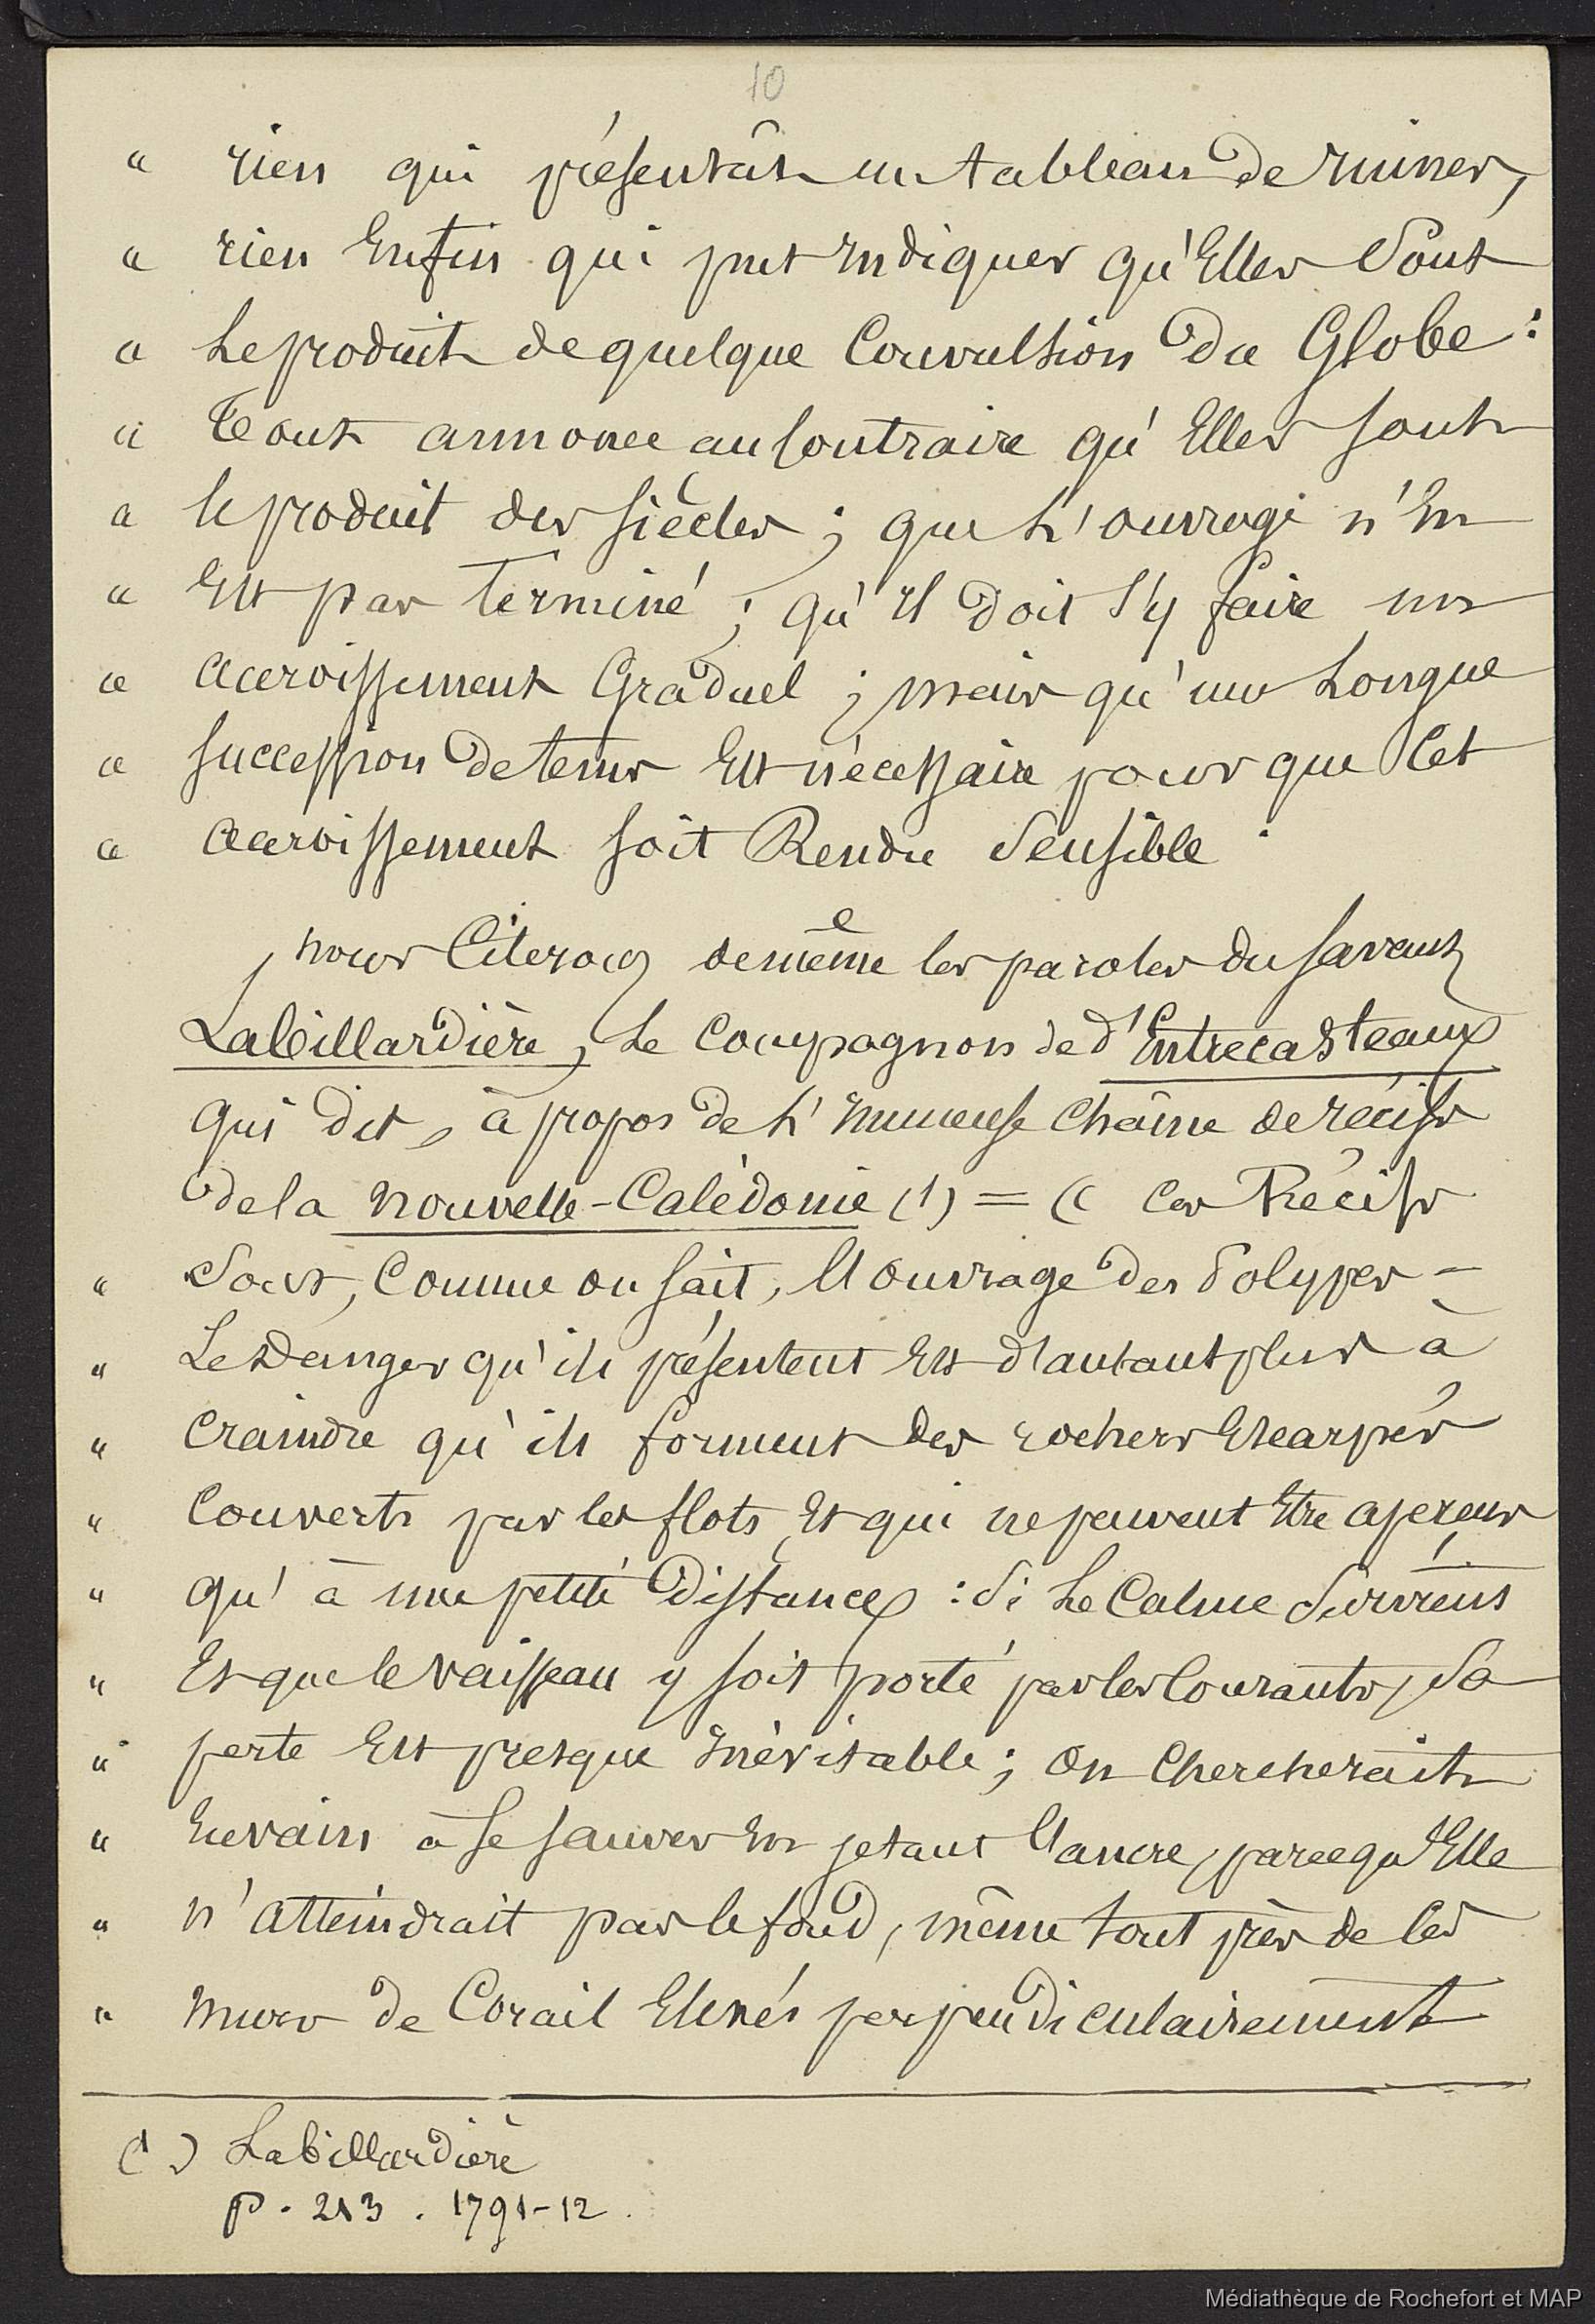 10
" rien qui présentât un tableau de ruines,
" rien Enfin qui put indiquer qu'Elles Sont
" Le produit de quelque Convulsion du Globe :
" Tout annonce au Contraire qu'Elles sont
" le produit des siècles ; que L'ouvrage n'En
" Est pas terminé ; qu'il doit s'y faire un
" accroissement Graduel ; mais qu'une Longue
" succession de tems Est nécessaire pour que Cet
" accroissement soit Rendu Sensible.
nous Citerons de même les paroles du savant
Labillardière, Le Compagnon de d'Entrecasteaux
qui dit, à propos de L'immense Chaîne de récifs
de la Nouvelle-Calédonie (1) = (( Ces Récifs
" Sont, Comme on sait, l'ouvrage des Polypes -
" Le Danger qu'ils présentent Est d'autant plus à
" Craindre qu'ils forment des rochers Escarpés
" Couverts par les flots Et qui ne peuvent Etre aperçus
" qu'à une petite Distance : Si Le Calme Survient
" Et que le vaisseau y soit porté par les Courants, Sa
" perte Est presque inévitable ; On Chercherait
" En vain à se sauver En jetant l'ancre, parce qu'Elle
" n'atteindrait pas le fond, même tout près de Ces
" murs de Corail Elevés perpendiculairement
(1) Labillardière
p. 213. 1791-12.
Médiathèque de Rochefort et MAP